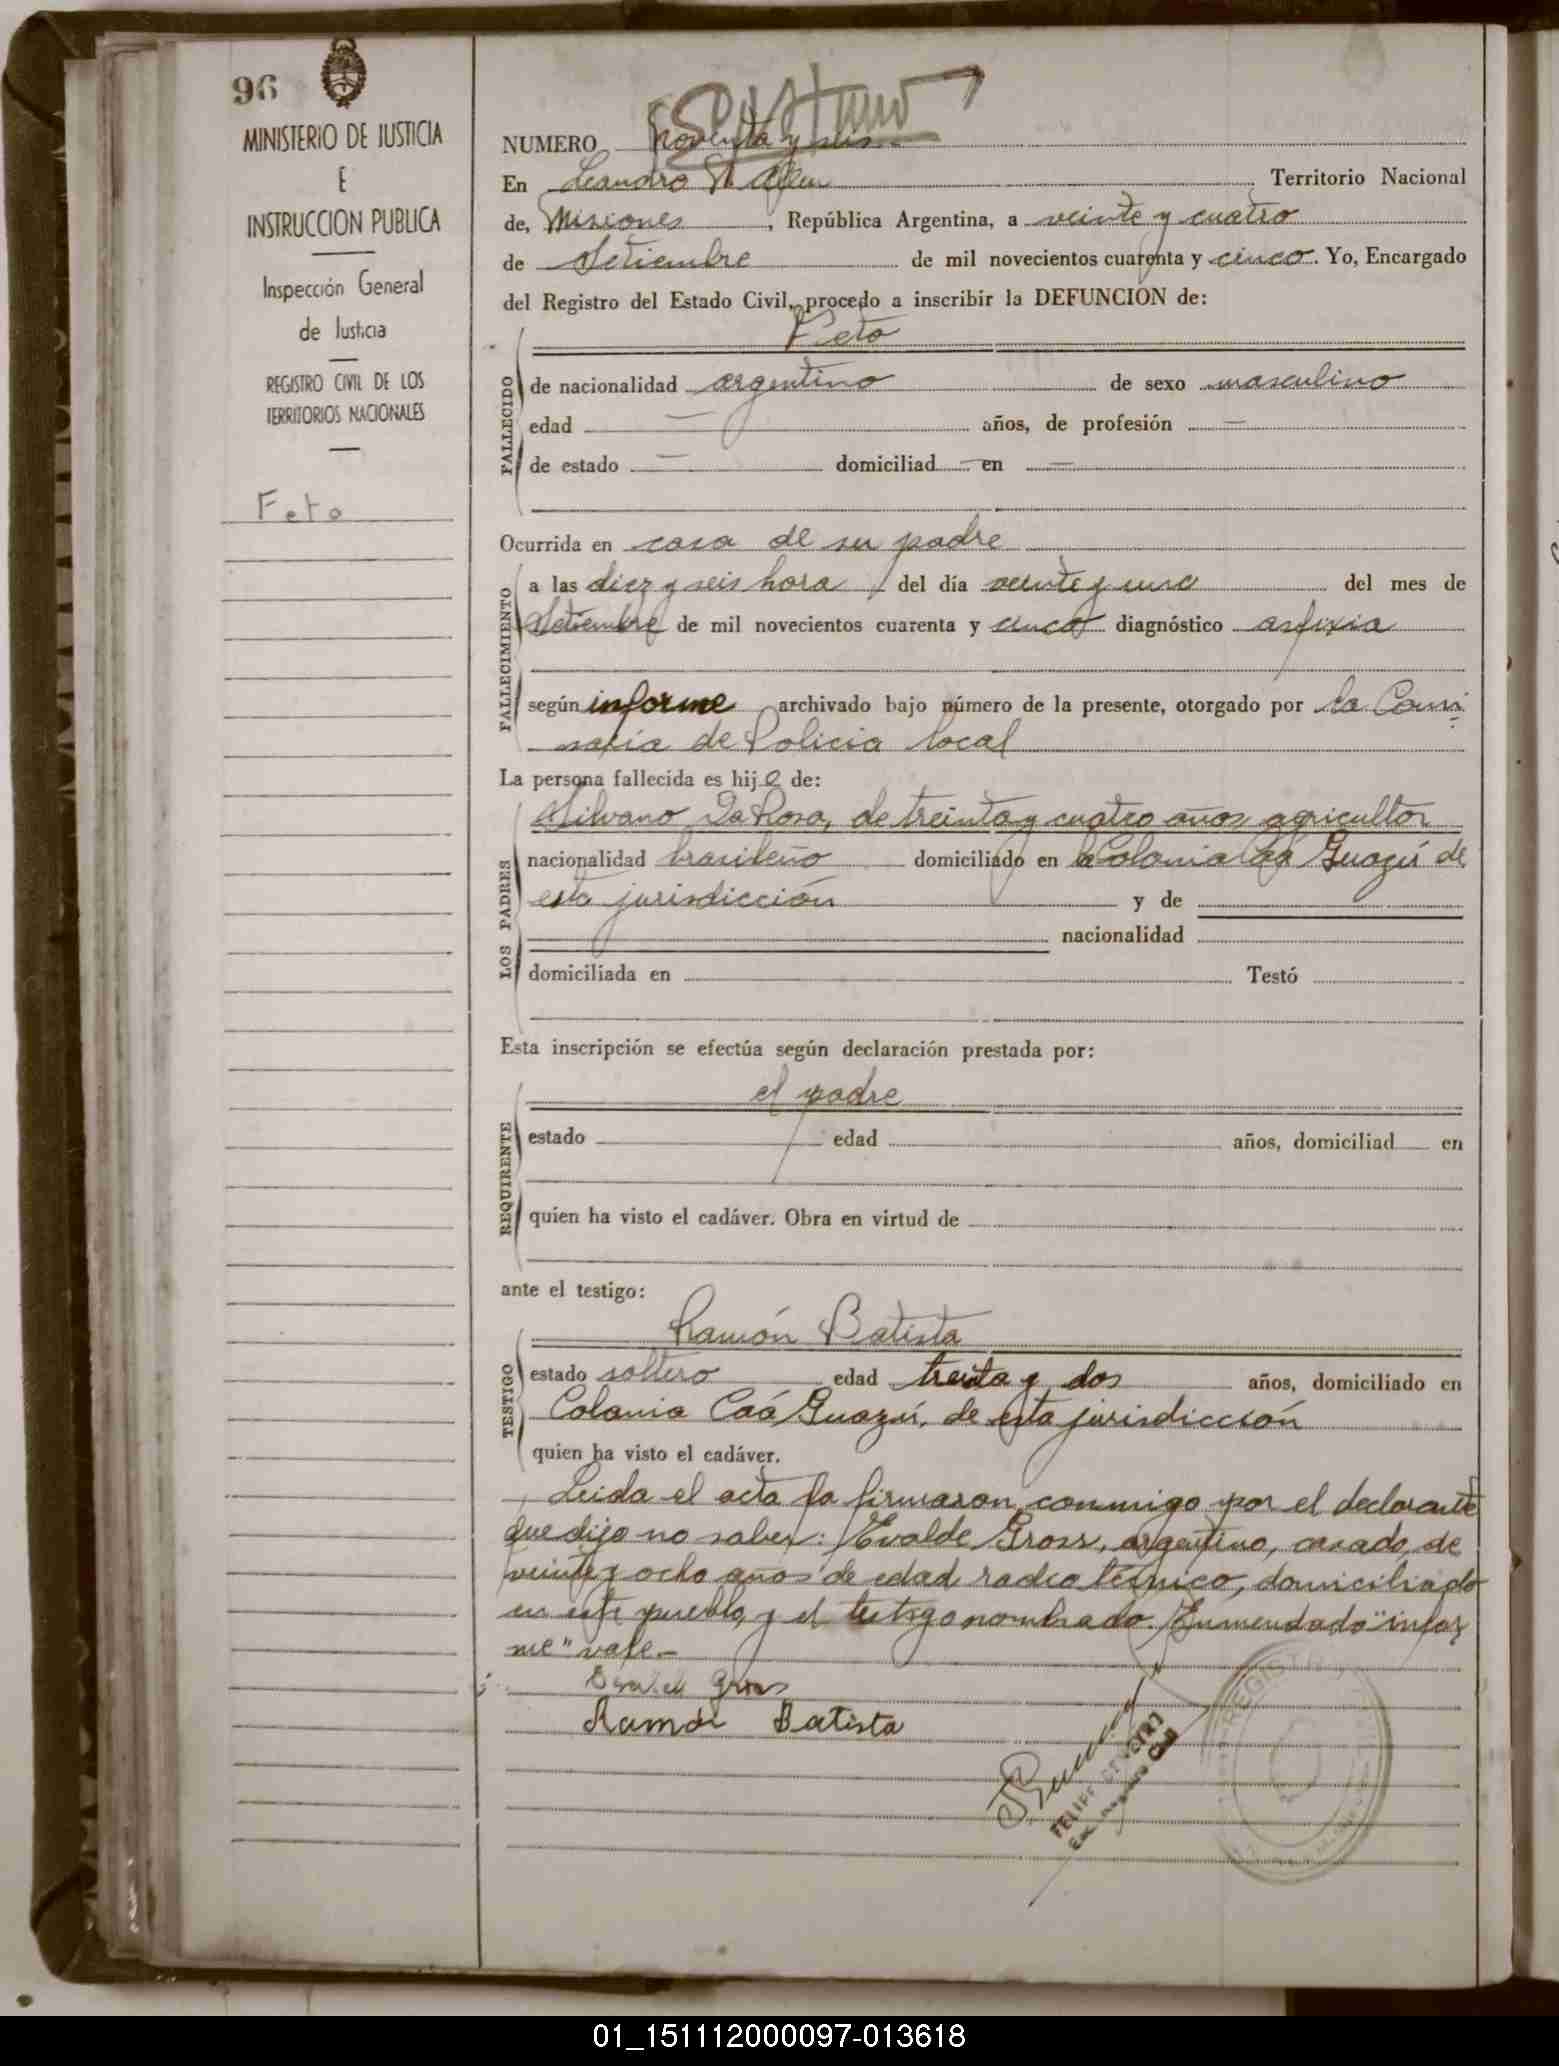 96
MINISTERIO DE JUSTICIA
E
INSTRUCCION PUBLICA
Inspección General
de Justicia
REGISTRO CIVIL DE LOS
TERRITORIOS NACIONALES
Feto
NUMERO noventa y seis
En Leandro N Alem Territorio Nacional
de, Misiones, República Argentina, a veinte y cuatro
de Setiembre de mil novecientos cuarenta y cinco. Yo, Encargado
del Registro del Estado Civil, procedo a inscribir la DEFUNCION de:
Feto
FALLECIDO
de nacionalidad argentino de sexo masculino
edad — años, de profesión —
de estado — domiciliad — en —
Ocurrida en casa de su padre
FALLECIMIENTO
a las diez y seis hora del día veinte y uno del mes de
Setiembre de mil novecientos cuarenta y cinco diagnóstico asfixia
según informe archivado bajo número de la presente, otorgado por la Comi
saría de Policia local
La persona fallecida es hijo de:
LOS PADRES
Silvano Da Rosa, de treinta y cuatro años agricultor
nacionalidad brasileño domiciliado en la Colonia Caá Guazú de
esta jurisdicción y de
nacionalidad
domiciliada en Testó
Esta inscripción se efectúa según declaración prestada por:
el padre
REQUIRENTE
estado edad años, domiciliad en
quien ha visto el cadáver. Obra en virtud de
ante el testigo:
Ramón Batista
TESTIGO
estado soltero edad treinta y dos años, domiciliado en
Colonia Caá Guazú, de esta jurisdicción
quien ha visto el cadáver.
Leida el acta la firmaron conmigo por el declarante
que dijo no saber: Evalde Gross, argentino, casado, de
veinte y ocho años de edad radio técnico, domiciliado
en este pueblo, y el testigo nombrado. Enmendado "infor
me" vale.-
Gross
Ramón Batista
FELIPE
REGISTRO
01_151112000097-013618